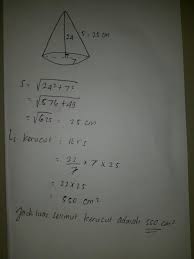 S = 25 cm
24
7
S = √24² + 7²
= √576 + 49
= √625 = 25 cm
Ls kerucut : πrs
= 22/7 × 7 × 25
= 22 × 25
= 550 cm²
Jadi luas selimut kerucut adalah 550 cm²